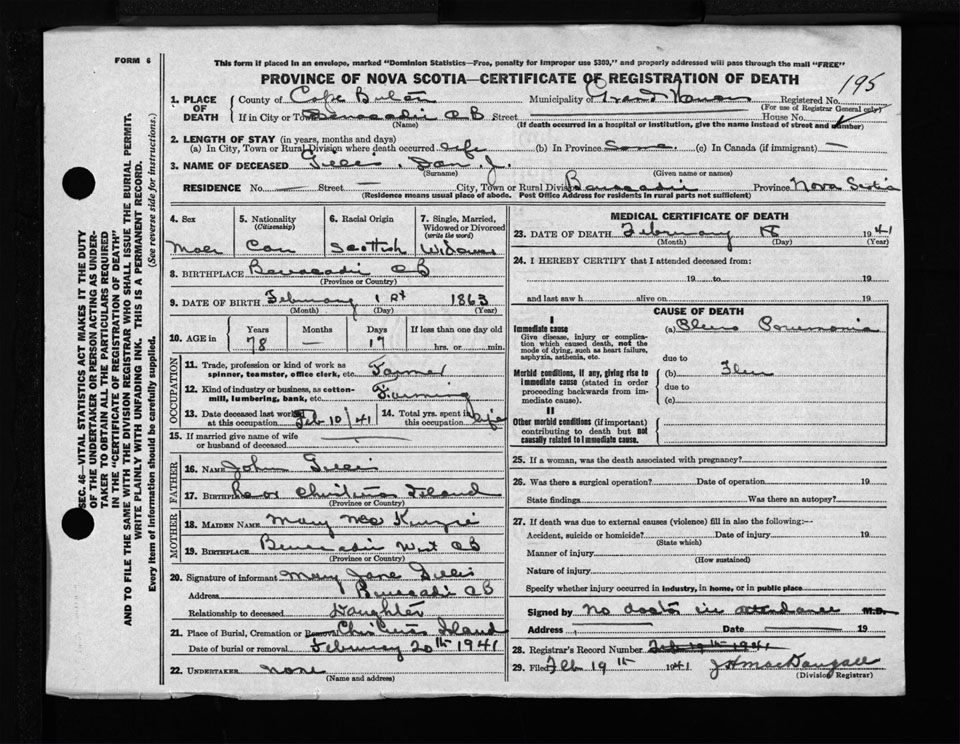 FORM 6
This form if placed in an envelope, marked "Dominion Statistics—Free, penalty for improper use $300," and properly addressed will pass through the mail "FREE"
PROVINCE OF NOVA SCOTIA—CERTIFICATE OF REGISTRATION OF DEATH
195
1. PLACE OF DEATH
County of Cape Breton Municipality of Registered No.
(For use of Registrar General only)
If in City or Town Benacadie CB Street House No.
(Name) (If death occurred in a hospital or institution, give the name instead of street and number)
2. LENGTH OF STAY (in years, months and days)
(a) In City, Town or Rural Division where death occurred life (b) In Province Same (c) In Canada (if immigrant) —
3. NAME OF DECEASED Gillis, Dan J.
(Surname) (Given name or names)
RESIDENCE No. — Street — City, Town or Rural Div Benacadie Province Nova Scotia
(Residence means usual place of abode. Post Office Address for residents in rural parts not sufficient)
4. Sex 5. Nationality 6. Racial Origin 7. Single, Married, Widowed or Divorced
(Citizenship) (write the word)
Can Scottish Widower
8. BIRTHPLACE Benacadie CB
(Province or Country)
9. DATE OF BIRTH February 1st 1863
(Month) (Day) (Year)
10. AGE in Years Months Days If less than one day old
78 — 17 hrs. or min.
OCCUPATION
11. Trade, profession or kind of work as spinner, teamster, office clerk, etc. Farmer
12. Kind of industry or business, as cotton-mill, lumbering, bank, etc. Farming
13. Date deceased last worked at this occupation Feb 10/41 14. Total yrs. spent in this occupation life
15. If married give name of wife or husband of deceased
FATHER
16. NAME John Gillis
17. BIRTHPLACE Christmas Island
(Province or Country)
MOTHER
18. MAIDEN NAME Mary McKenzie
19. BIRTHPLACE Benacadie West CB
(Province or Country)
20. Signature of informant Mary Jane Gillis
Address Benacadie CB
Relationship to deceased Daughter
21. Place of Burial, Cremation or Removal Christmas Island
Date of burial or removal February 20th 1941
22. UNDERTAKER none
(Name and address)
MEDICAL CERTIFICATE OF DEATH
23. DATE OF DEATH February 18 1941
(Month) (Day) (Year)
24. I HEREBY CERTIFY that I attended deceased from:
19 to 19
and last saw h alive on 19
CAUSE OF DEATH
I
Immediate cause (a) Pleuro Pneumonia
Give disease, injury or complication which caused death, not the mode of dying, such as heart failure, asphyxia, asthenia, etc.
due to
Morbid conditions, if any, giving rise to immediate cause (stated in order proceeding backwards from immediate cause).
(b) Flu
due to
(c)
II
Other morbid conditions (if important) contributing to death but not causally related to immediate cause.
25. If a woman, was the death associated with pregnancy?
26. Was there a surgical operation? Date of operation 19
State findings Was there an autopsy?
27. If death was due to external causes (violence) fill in also the following:—
Accident, suicide or homicide? Date of injury 19
(State which)
Manner of injury
(How sustained)
Nature of injury
Specify whether injury occurred in industry, in home, or in public place
Signed by no doctor in attendance M.D.
Address Date 19
28. Registrar's Record Number Feb 19th 1941
29. Filed Feb 19th 1941 J H MacDougall
(Division Registrar)
SEC. 46—VITAL STATISTICS ACT MAKES IT THE DUTY
OF THE UNDERTAKER OR PERSON ACTING AS UNDER-
TAKER TO OBTAIN ALL THE PARTICULARS REQUIRED
IN THE "CERTIFICATE OF REGISTRATION OF DEATH"
AND TO FILE THE SAME WITH THE DIVISION REGISTRAR WHO SHALL ISSUE THE BURIAL PERMIT.
WRITE PLAINLY WITH UNFADING INK. THIS IS A PERMANENT RECORD.
Every item of information should be carefully supplied. (See reverse side for instructions.)